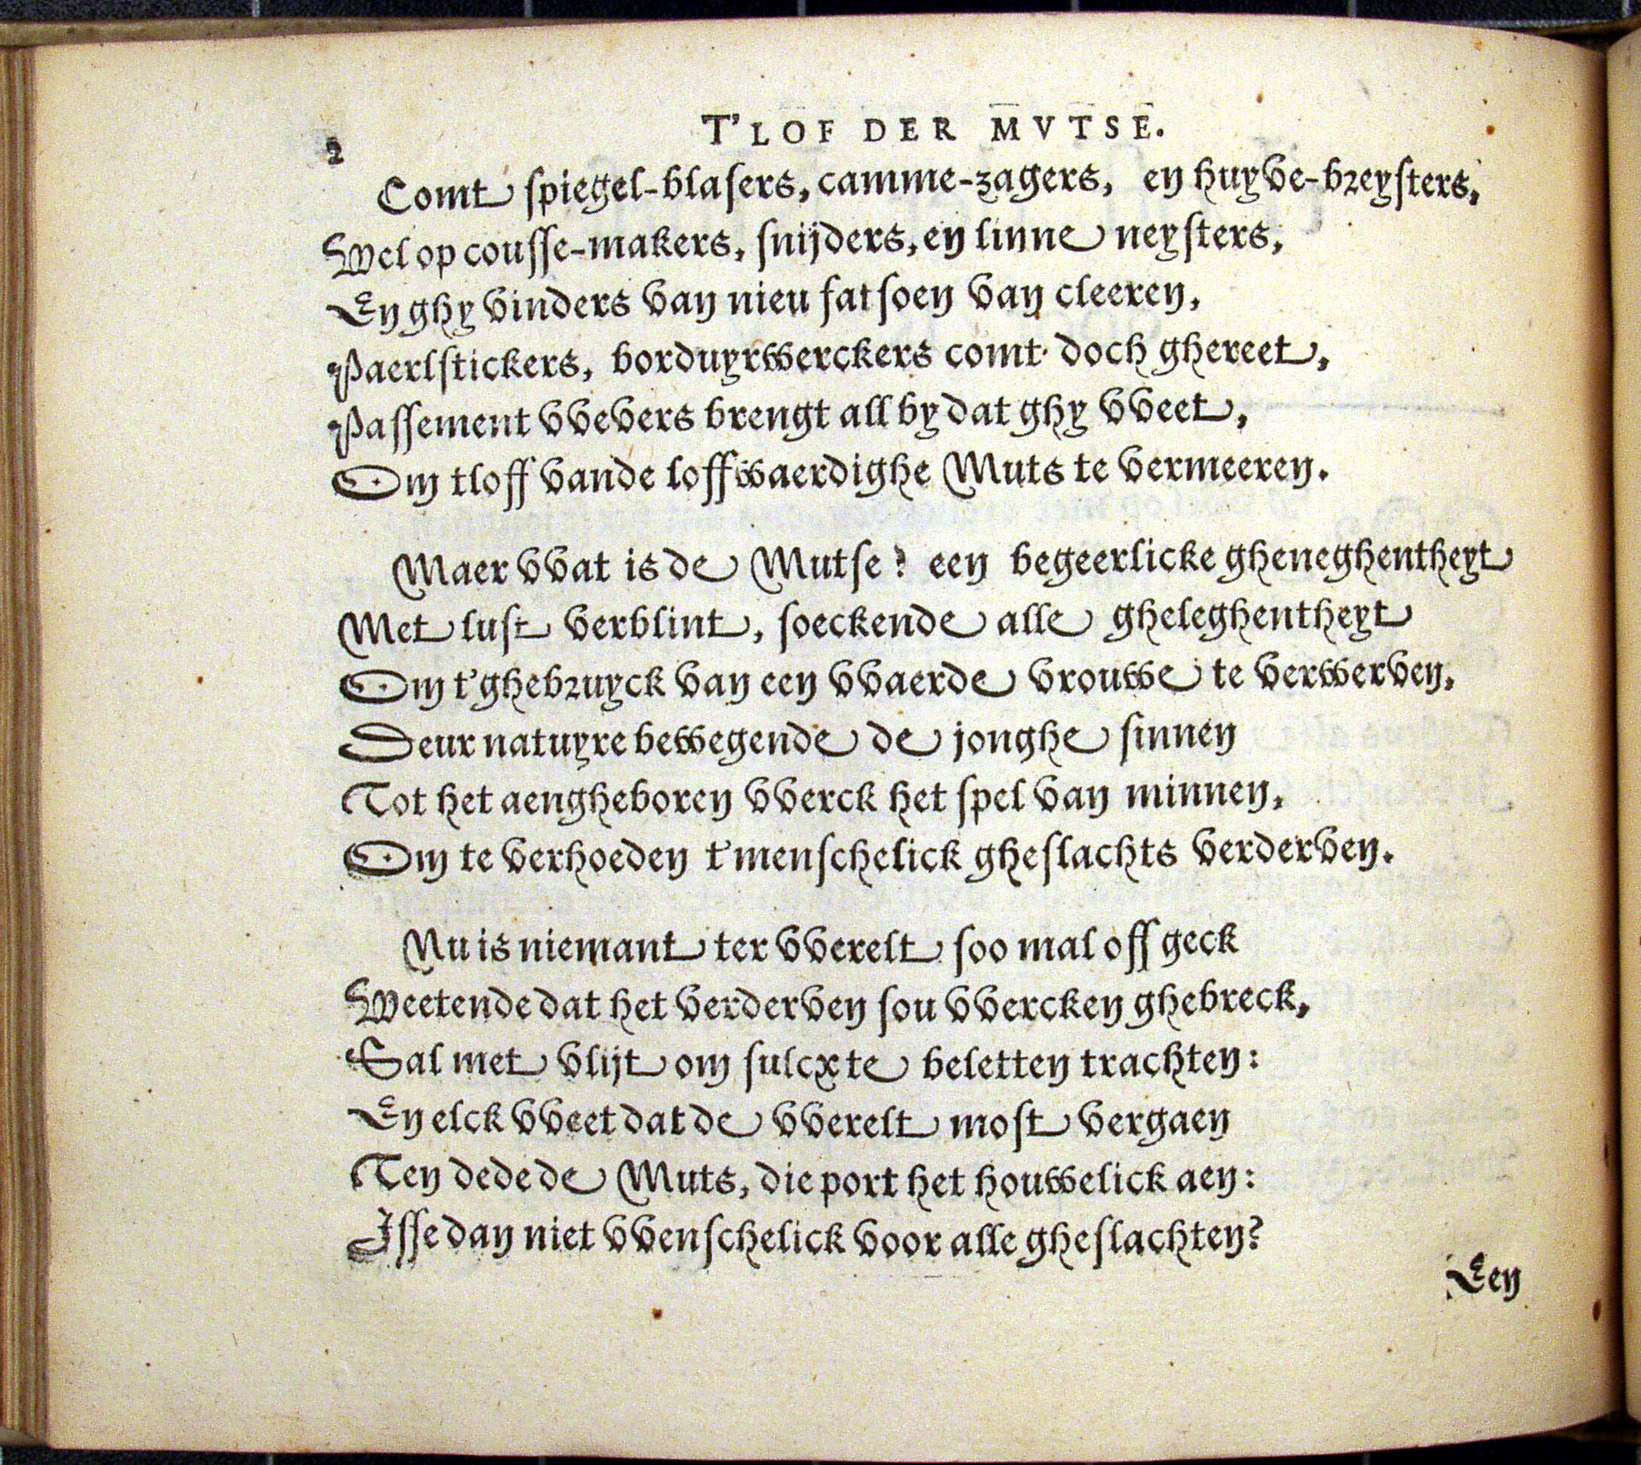 T'LOF DER MVTSE.
2
Comt spiegel-blasers, camme-zagers, en huyve-breysters,
Wel op cousse-makers, snijders, en linne neysters,
En ghy vinders van nieu fatsoen van cleeren,
Paerlstickers, borduyrwerckers comt doch ghereet,
Passement vvevers brengt all by dat ghy vveet,
Om tloff vande loffwaerdighe Muts te vermeeren.
Maer vvat is de Mutse? een begeerlicke gheneghentheyt
Met lust verblint, soeckende alle gheleghentheyt
Om t'ghebruyck van een vvaerde vrouwe te verwerven,
Deur natuyre bewegende de jonghe sinnen
Tot het aengheboren vverck het spel van minnen,
Om te verhoeden t'menschelick gheslachts verderven.
Nu is niemant ter vverelt soo mal off geck
Weetende dat het verderven sou vvercken ghebreck,
Sal met vlijt om sulcx te beletten trachten:
En elck vveet dat de vverelt most vergaen
Ten dede de Muts, die port het houwelick aen:
Isse dan niet vvenschelick voor alle gheslachten?
Een